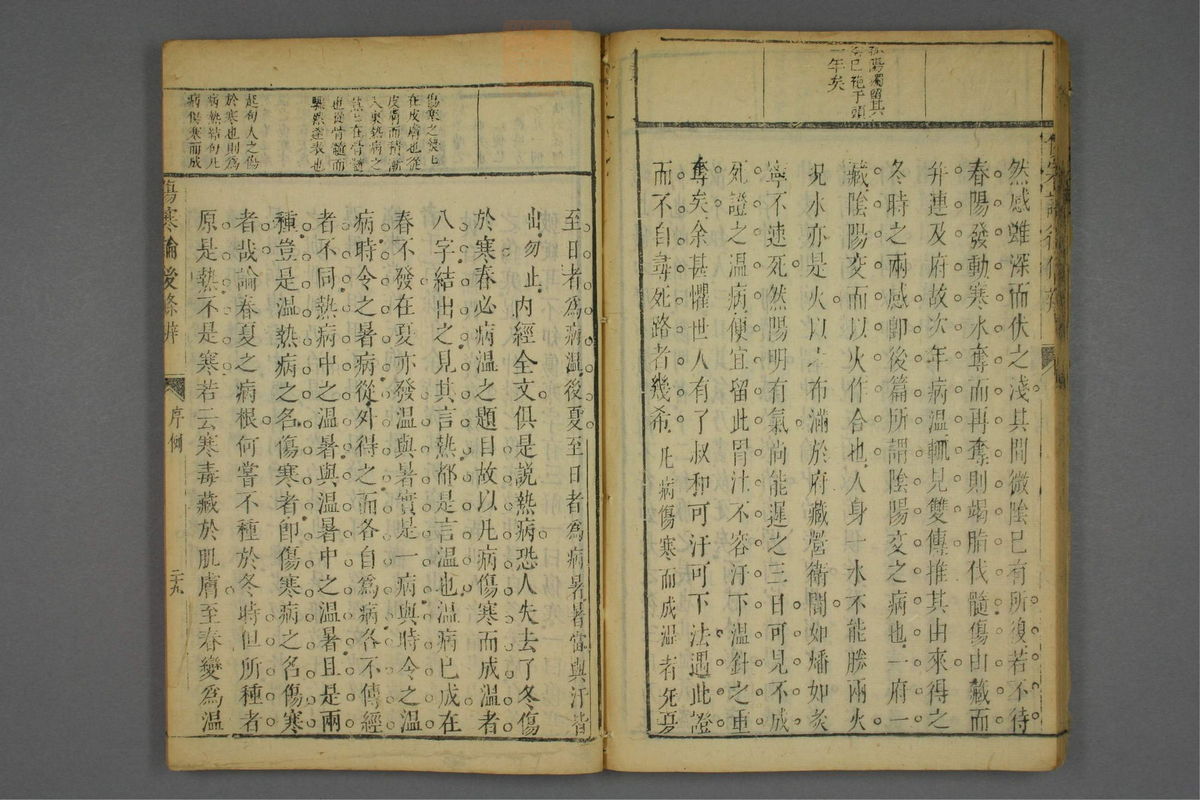 孤陽獨留其
一年矣
然感雖深而伏之淺其間微陰已有所復若不待
春陽發動寒水奪而再奪則竭脂伐髓傷由藏而
并連及府故次年病溫輒見雙傳推其由來得之
冬時之兩感卽後篇所謂陰陽交之病也一府一
藏陰陽交而以火作合也人身一水不能勝兩火
況水亦是火以之布滿於府藏營衛間如燔如炙
寧不速死然陽明有氣尚能遲之三日可見不成
死證之溫病便宜留此胃汁不容汗下溫針之重
奪矣余甚懼世人有了叔和可汗可下法遇此證
而不自尋死路者幾希
凡病傷寒而成溫者先夏
傷寒之侵也
在皮膚也從
皮膚而積漸
入裏熱病之
蒸也在骨髓
也從骨髓而
驟然達表也
起句人之傷
於寒也則為
病熱結句凡
病傷寒而成
至日者為病溫後夏至日者為病暑暑當與汗皆
出勿止內經全文俱是說熱病恐人失去了冬傷
於寒春必病溫之題目故以凡病傷寒而成溫者
八字結出之見其言熱都是言溫也溫病已成在
春不發在夏亦發溫與暑實是一病與時令之溫
病時令之暑病從外得之而各自為病各不傳經
者不同熱病中之溫暑與溫暑中之溫暑且是兩
種豈是溫熱病之名傷寒者卽傷寒病之名傷寒
者哉論春夏之病根何嘗不種於冬時但所種者
原是熱不是寒若云寒毒藏於肌膚至春變為溫
傷寒論後條辨
序例
二十九